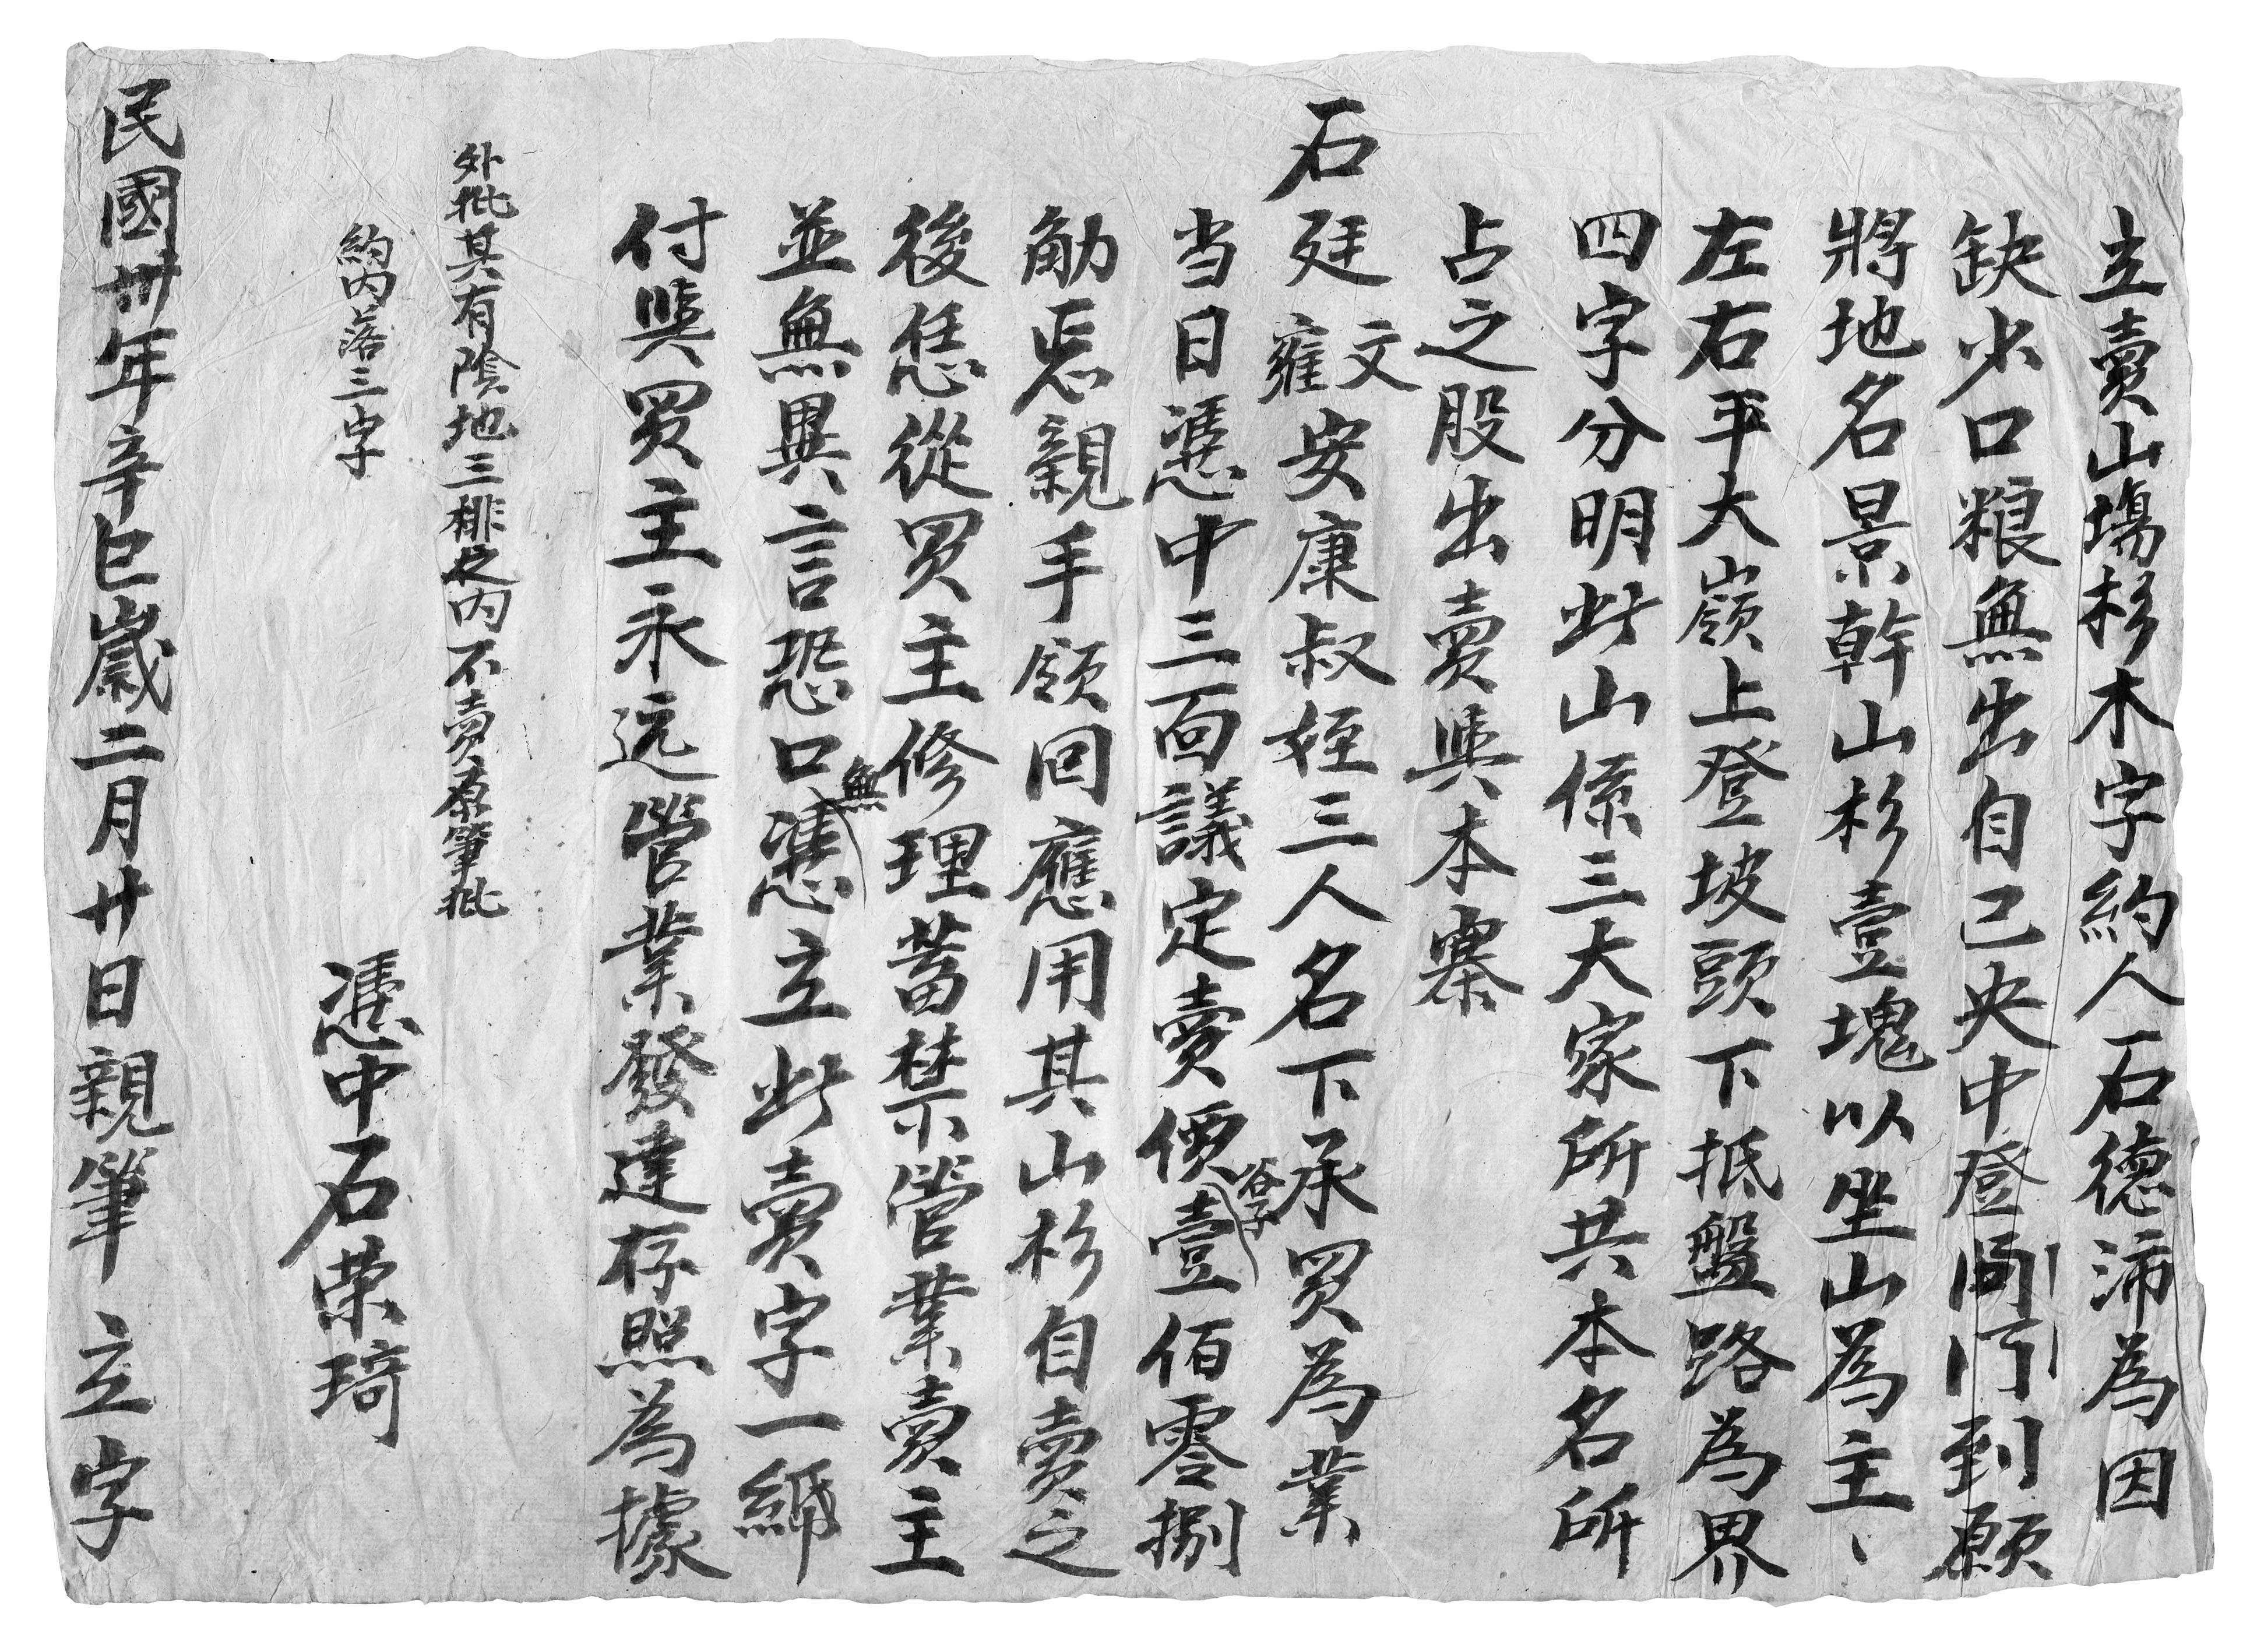 立賣山塲杉木字約人石德沛為因
缺少口粮無出自己央中登門問到願
將地名景幹山杉壹塊以坐山為主、
左右平大嶺上登坡頭下抵盤路為界
四字分明此山係三大家所共本名所
占之股出賣與本寨
石廷文雍安康叔姪三人名下承買為業
当日憑中三面議定賣價谷子壹佰零捌
觔忢親手領回應用其山杉自賣之
後恁從買主修理蓄禁營業賣主
並無異言恐口無憑立此賣字一紙
付與買主永远營業發達存照為據
外批其有陰地三排之内不賣原筆批
約内落三字
憑中石榮琦
民國卅年辛巳歲二月廿日親筆立字